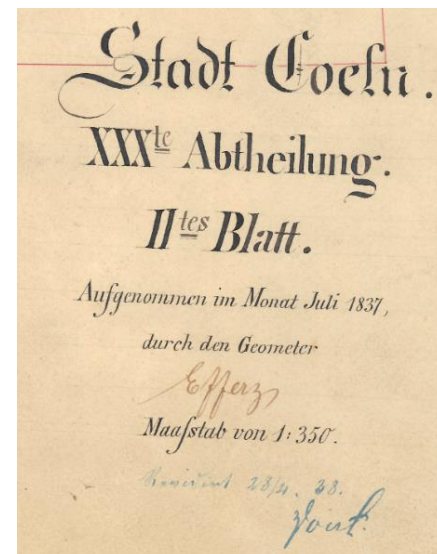 Stadt Coeln.
XXXte Abtheilung.
IItes Blatt.
Aufgenommen im Monat Juli 1837,
durch den Geometer
Efferz
Maaſstab von 1:350.
Revidirt 28/4. 38.